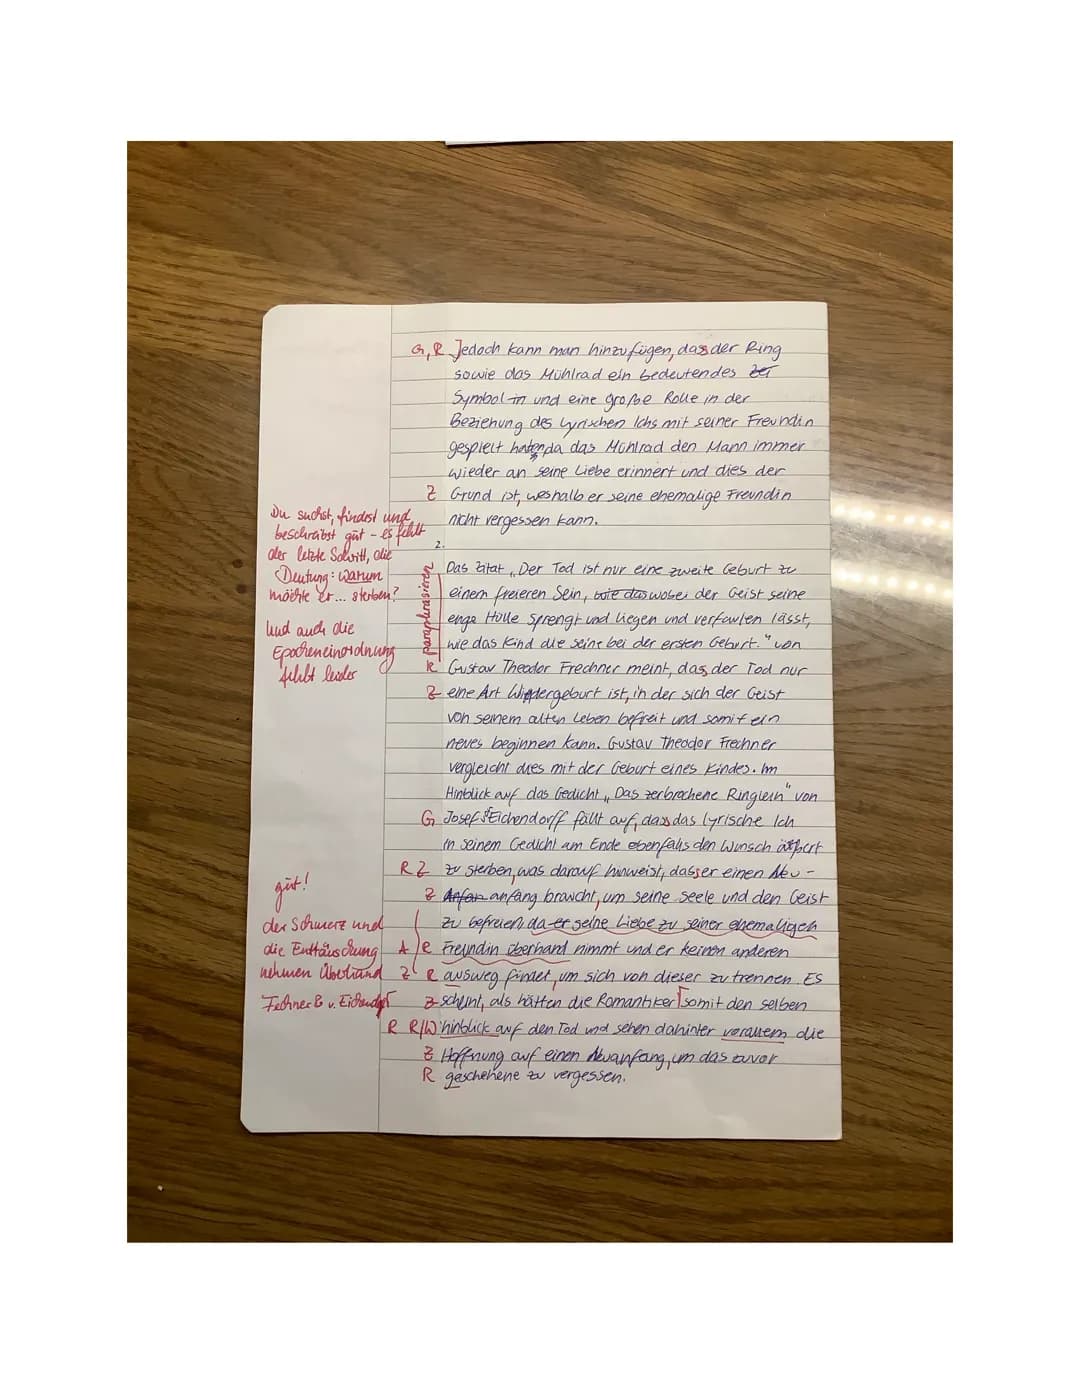 G, R Jedoch kann man hinzufügen, dass der Ring
sowie das Mühlrad ein bedeutendes
Symbol in und eine große Rolle in der
Beziehung des lyrischen Ichs mit seiner Freundin
gespielt haben, da das Mühlrad den Mann immer
wieder an seine Liebe erinnert und dies der
Z Grund ist, weshalb er seine ehemalige Freundin
nicht vergessen kann.
Du suchst, findest und
beschreibst gut - es fehlt
der letzte Schritt, die
Deutung: warum
möchte er... sterben?
Und auch die
Epocheneinordnung
fehlt leider
2.
paraphrasieren
Das Zitat „Der Tod ist nur eine zweite Geburt zu
einem freieren Sein, wie das wobei der Geist seine
enge Hülle sprengt und liegen und verfaulen lässt,
wie das Kind die seine bei der ersten Geburt." von
R Gustav Theodor Frechner meint, dass der Tod nur
Z eine Art Wiedergeburt ist, in der sich der Geist
von seinem alten Leben befreit und somit ein
neues beginnen kann. Gustav Theodor Frechner
vergleicht dies mit der Geburt eines Kindes. Im
Hinblick auf das Gedicht „Das zerbrochene Ringlein" von
G Josef Eichendorff fällt auf, dass das lyrische Ich
in seinem Gedicht am Ende ebenfalls den Wunsch äußert
R Z zu sterben, was darauf hinweist, dass er einen Neu-
Z Anfan anfang braucht, um seine Seele und den Geist
zu befreien, da er seine Liebe zu seiner ehemaligen
A R Freundin überhand nimmt und er keinen anderen
Z R ausweg findet, um sich von dieser zu trennen. Es
Z scheint, als hätten die Romantiker somit den selben
R R/W hinblick auf den Tod und sehen dahinter vorallem die
Z Hoffnung auf einen Neuanfang, um das zuvor
R geschehene zu vergessen.
gut!
der Schmerz und
die Enttäuschung
nehmen Überhand
Fechner & v. Eichendorff